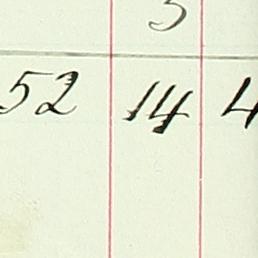 5
52 14 4